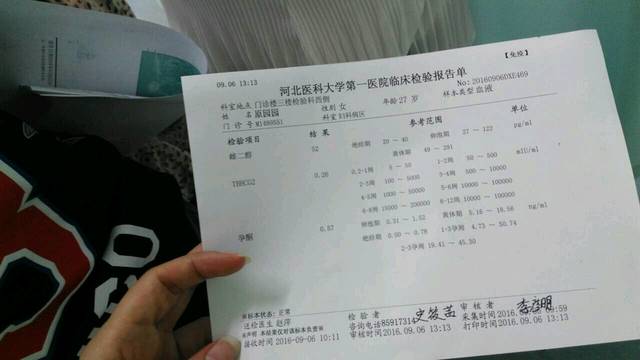 【免疫】
09.06 13:13
河北医科大学第一医院临床检验报告单
No:20160906DXE469
科室地点 门诊楼三楼检验科西侧
姓 名 原园园 性别 女 年龄 27 岁 样本类型 血液
门 诊 号 M1480551 科室 妇科病区
检验项目 结 果 参考范围 单 位
雌二醇 52 绝经期 20 ～ 40 卵泡期 27 ～ 122 pg/ml
黄体期 49 ～ 291
TBHCG2 0.20 0.2-1周 5 ～ 50 1-2周 50 ～ 500 mIU/ml
2-3周 100 ～ 5000 3-4周 500 ～ 10000
4-5周 1000 ～ 50000 5-6周 10000 ～ 100000
6-8周 15000 ～ 200000 6-12周 10000 ～ 100000
孕酮 0.57 卵泡期 0.31 ～ 1.52 黄体期 5.16 ～ 18.56 ng/ml
绝经期 0.00 ～ 0.78 1-3孕周 4.73 ～ 50.74
2-3孕周 19.41 ～ 45.30
※标本状态:正常 检 验 者 审 核 者
送检医生 赵萍 咨询电话85917314 采集时间2016.09.06 09:59
※声明 本结果仅对该标本负责※ 审核时间2016.09.06 13:13 打印时间2016.09.06 13:13
接收时间 2016-09-06 10:11